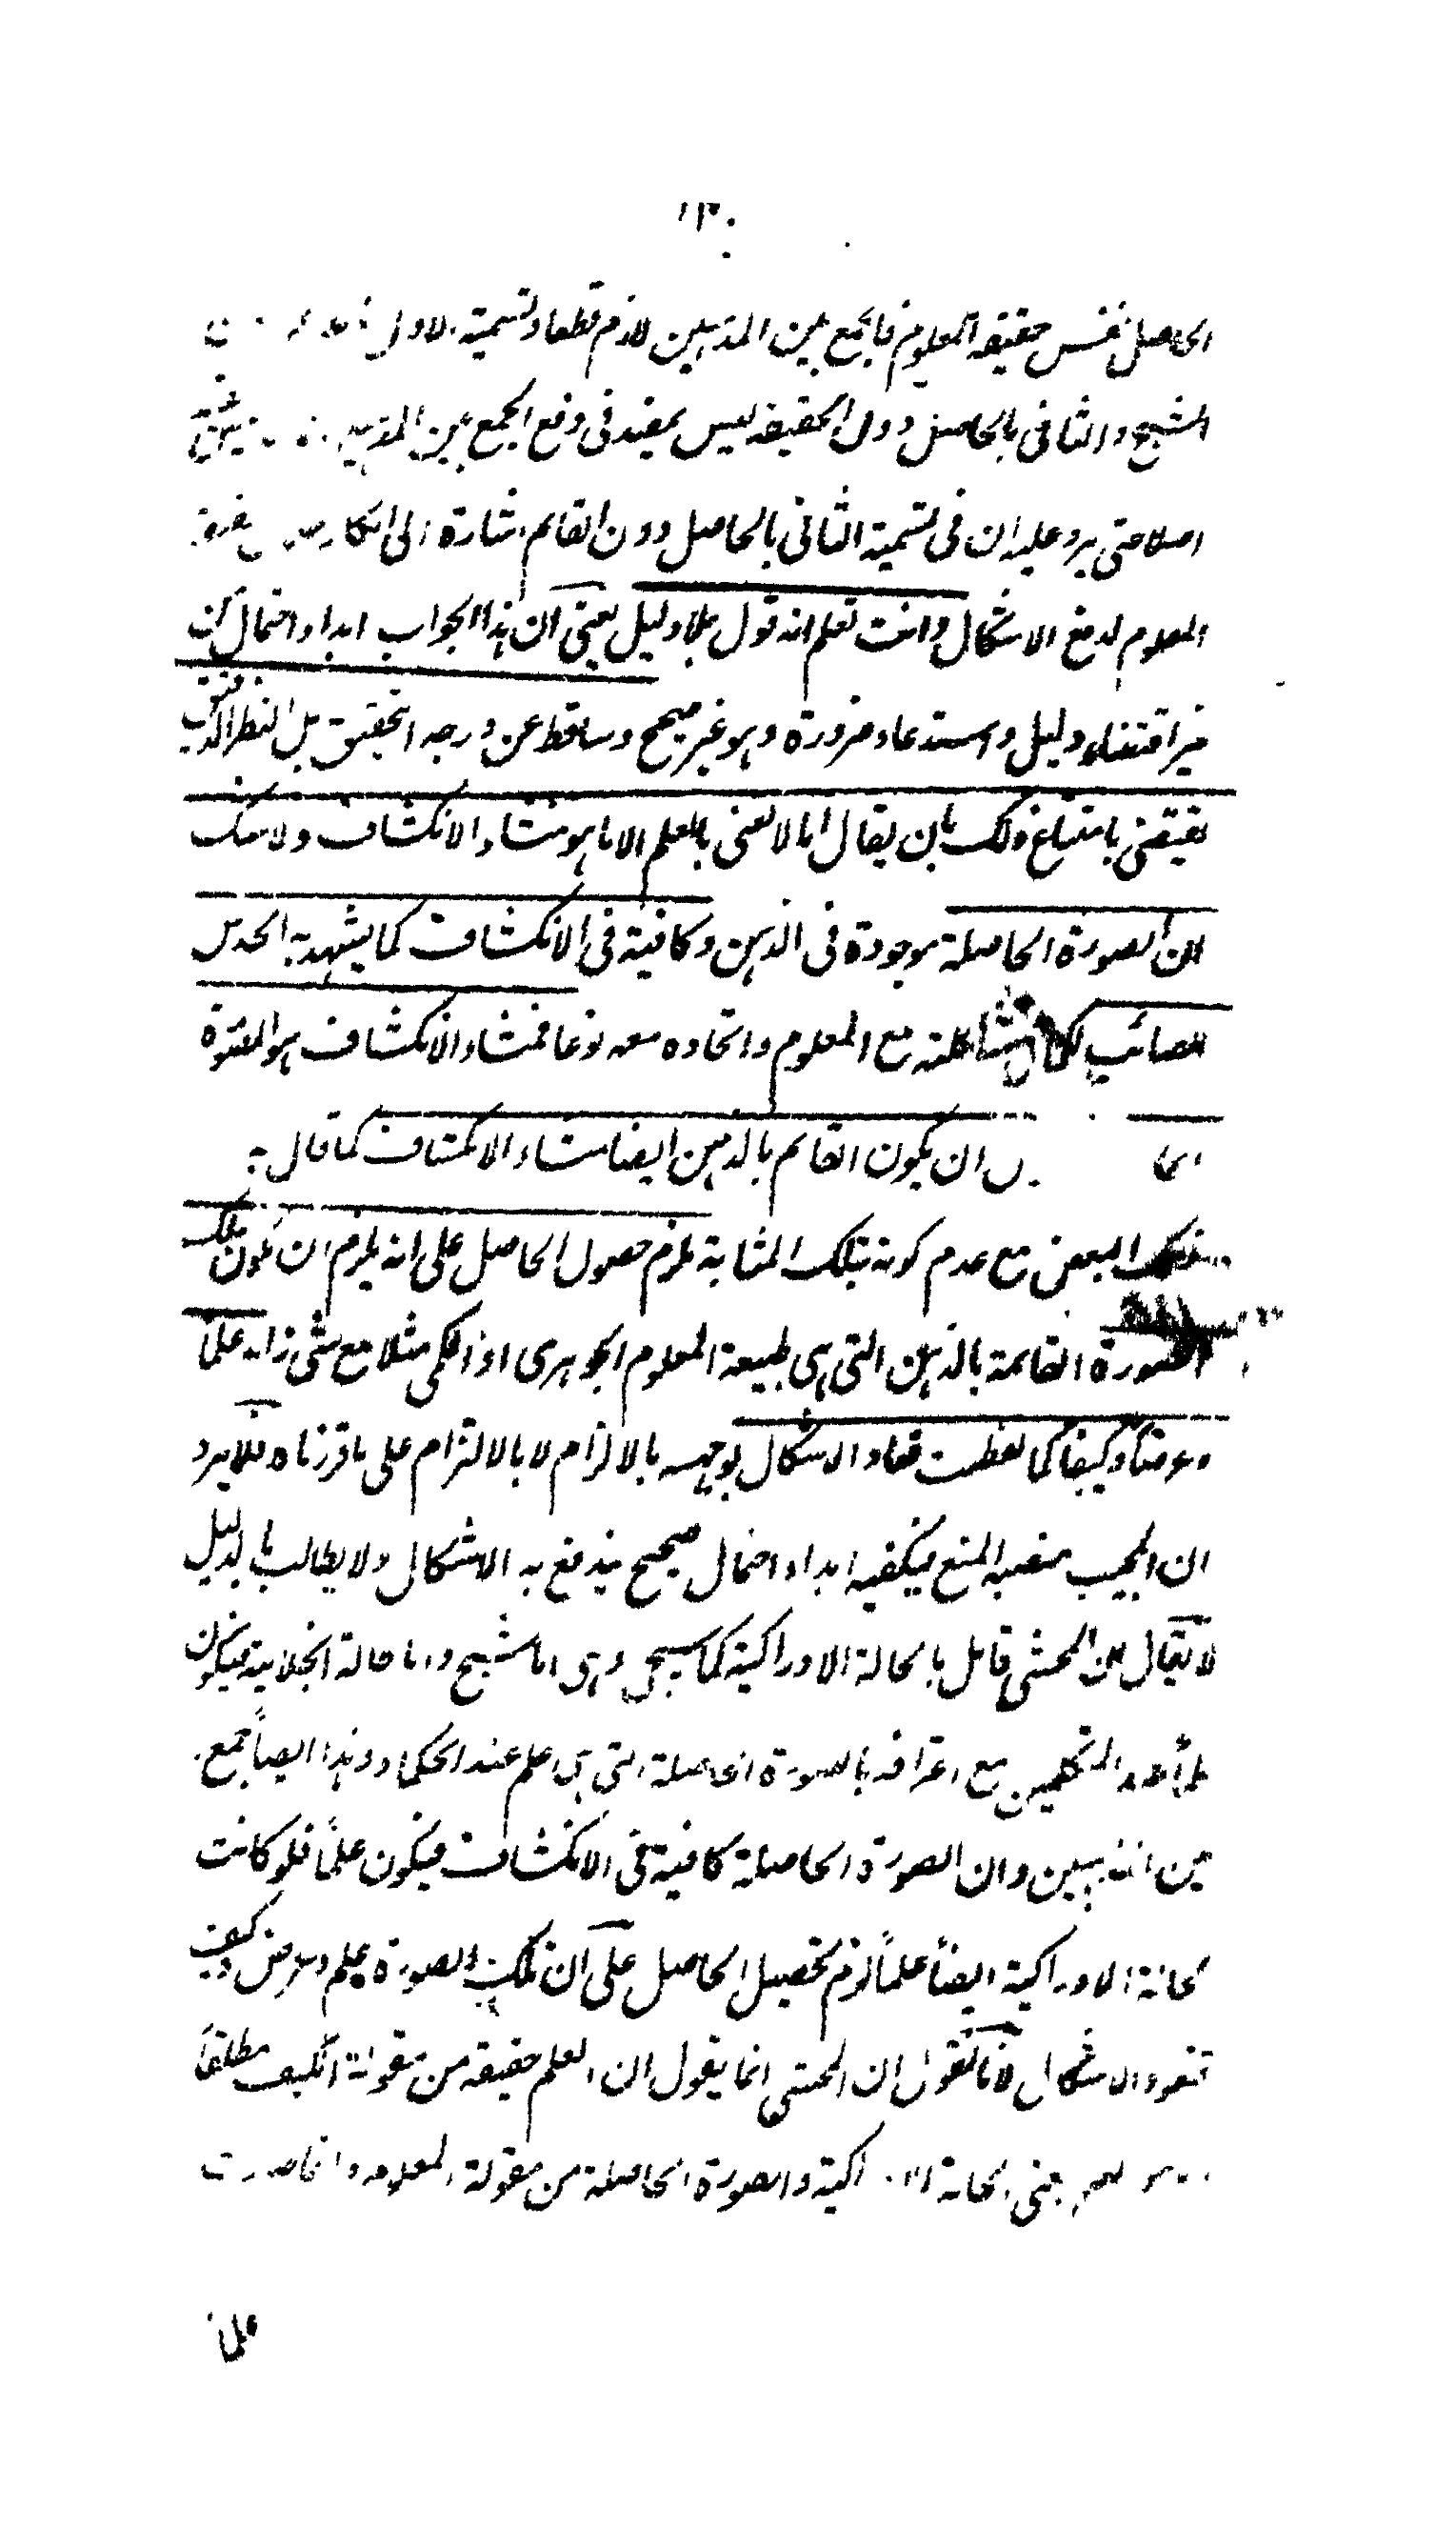 ١٣٠
الحاصل نفس حقيقة المعلوم فالجمع بين المذهبين لازم قطعا وتسمية الاول
الشبح والثانى بالحاصل دون الحقيقة ليس بمفيد فى دفع الجمع بين المذهبين
اصلا حتى يرد عليه ان فى تسمية الثانى بالحاصل دون القائم اشارة الى انكار
المعلوم لدفع الاشكال وانت تعلم انه قول بلا دليل يعنى ان هذا الجواب ابداء احتمال من
غير اقتضاء دليل واستدعاء ضرورة وهو غير صحيح وساقط عن درجة التحقيق بل النظر الدقيق
يقتضى بامتناع ذلك بان يقال انا لا نعنى بالعلم الا ما هو منشاء الانكشاف ولا شك
ان الصورة الحاصلة موجودة فى الذهن وكافية فى الانكشاف كما يشهد به الحدس
الصائب لكمال مشاكلته مع المعلوم واتحاده معه نوعا فمنشاء الانكشاف هو الصورة
ان يكون القائم بالذهن ايضا منشاء الانكشاف كما قال به
ذلك البعض مع عدم كونه بتلك المثابة يلزم حصول الحاصل على انه يلزم ان يكون تلك
الصورة القائمة بالذهن التى هى طبيعة المعلوم الجوهرى او الكمى مثلا مع شئ زايد علما
وعرضا وكيفا كما لفظت فعاد الاشكال بوجهه بالالزام لا بالالتزام على ما قررناه فلا يرد
ان المجيب منصبه المنع فيكفيه ابداء احتمال صحيح يندفع به الاشكال ولا يطالب بالدليل
لا يقال ان المحشى قائل بالحالة الادراكية كما سيجئ وهى اما شبح واما حالة انجلائية فيكون
عند المتكلمين مع اعترافه بالصورة الحاصلة التى هى علم عند الحكماء وهذا ايضاً جمع
بين المذهبين وان الصورة الحاصلة كافية فى الانكشاف فيكون علماً فلو كانت
الحالة الادراكية ايضاً علماً لزم تحصيل الحاصل على ان تلك الصورة علم وعرض وكيف
فيعود الاشكال لانا نقول ان المحشى انما يقول ان العلم حقيقة من مقولة الكيف مطلقاً
الحالة الادراكية والصورة الحاصلة من مقولة المعلوم وانما صدرت
علما